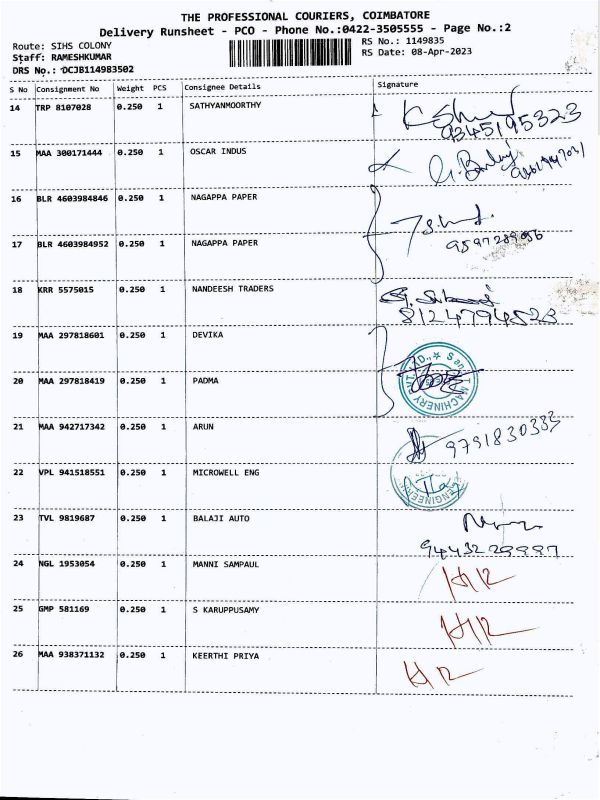 THE PROFESSIONAL COURIERS, COIMBATORE
Delivery Runsheet - PCO - Phone No.:0422-3505555 - Page No.:2
Route: SIHS COLONY RS No.: 1149835
Staff: RAMESHKUMAR RS Date: 08-Apr-2023
DRS No.: DCJB114983502
S No Consignment No Weight PCS Consignee Details Signature
14 TRP 8107028 0.250 1 SATHYANMOORTHY
9345195323
15 MAA 300171444 0.250 1 OSCAR INDUS
16 BLR 4603984846 0.250 1 NAGAPPA PAPER
17 BLR 4603984952 0.250 1 NAGAPPA PAPER
18 KRR 5575015 0.250 1 NANDEESH TRADERS
8124794523
19 MAA 297818601 0.250 1 DEVIKA
20 MAA 297818419 0.250 1 PADMA
MACHINERY
21 MAA 942717342 0.250 1 ARUN 9791830383
22 VPL 941518551 0.250 1 MICROWELL ENG
23 TVL 9819687 0.250 1 BALAJI AUTO
24 NGL 1953054 0.250 1 MANNI SAMPAUL
25 GMP 581169 0.250 1 S KARUPPUSAMY
26 MAA 938371132 0.250 1 KEERTHI PRIYA